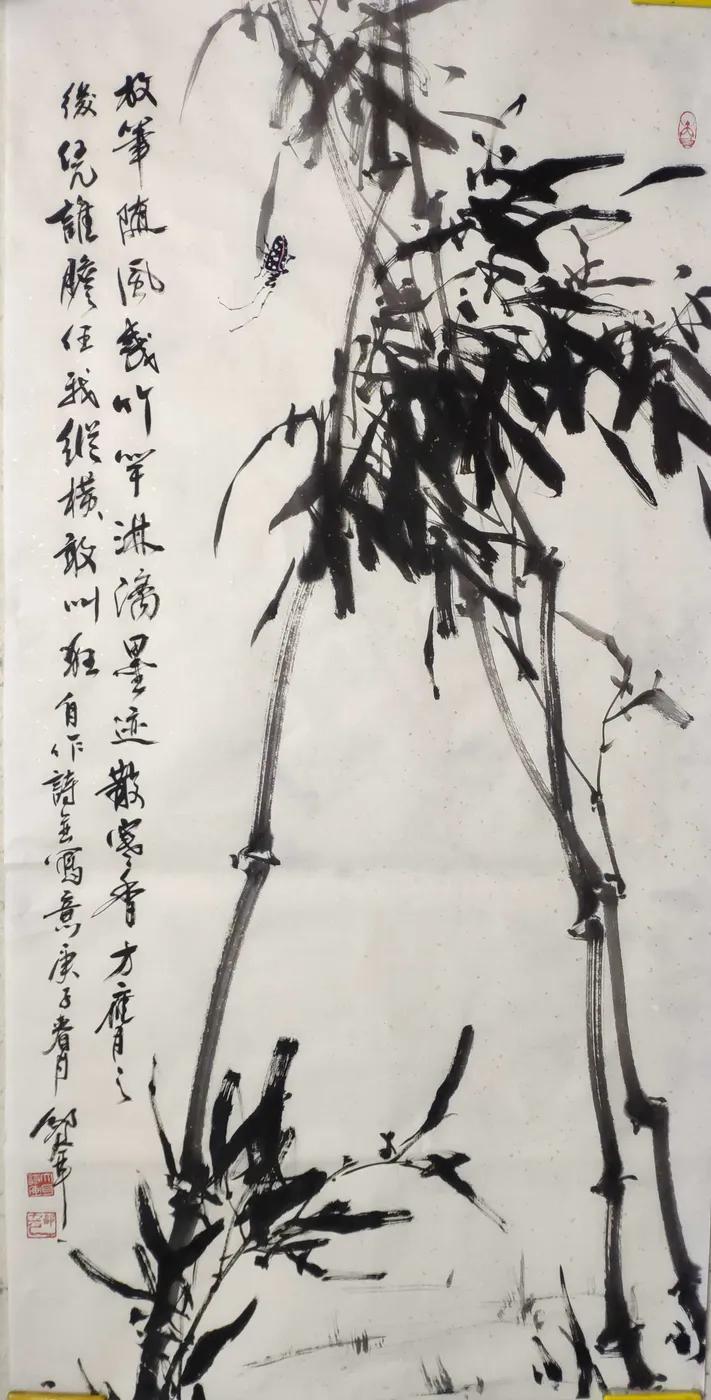 放筆随風竹竿淋漓墨迹散寒香方膺之
後凭誰膽任我縱橫敢叫狂自作詩並寫意庚子春月